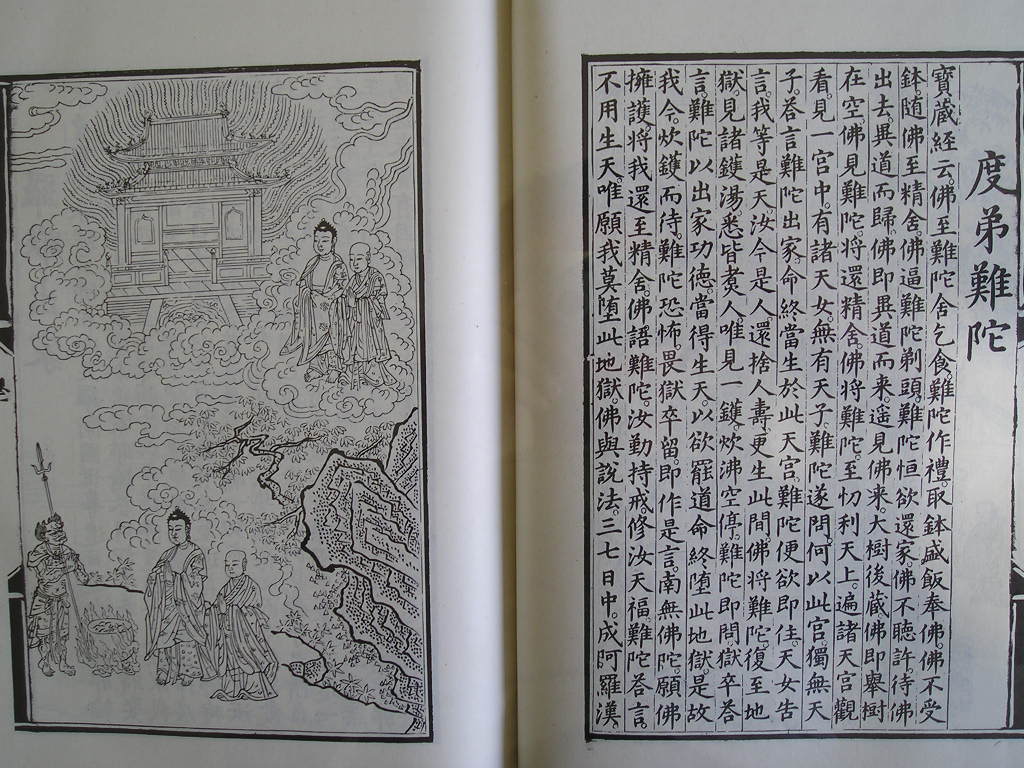 度弟難陀
寶藏經云。佛至難陀舍乞食。難陀作禮。取鉢盛飯奉佛。佛不受
鉢。隨佛至精舍。佛逼難陀剃頭。難陀恒欲還家。佛不聽許。待佛
出去。異道而歸。佛即異道而來。遥見佛來。大樹後藏。佛即舉樹
在空。佛見難陀。將還精舍。佛將難陀。至忉利天上。遍諸天宮觀
看。見一宮中。有諸天女。無有天子。難陀遂問。何以此宮。獨無天
子。荅言難陀出家。命終當生於此天宮。難陀便欲即住。天女告
言。我等是天。汝今是人。還捨人壽。更生此間。佛將難陀。復至地
獄。見諸鑊湯。悉皆煑人。唯見一鑊。炊沸空停。難陀即問。獄卒荅
言。難陀以出家功德。當得生天。以欲罷道。命終墮此地獄。是故
我今。炊鑊而待。難陀恐怖。畏獄卒留。即作是言。南無佛陀。願佛
擁護。將我還至精舍。佛語難陀。汝勤持戒。修汝天福。難陀荅言
不用生天。唯願我莫墮此地獄。佛與說法。三七日中。成阿羅漢